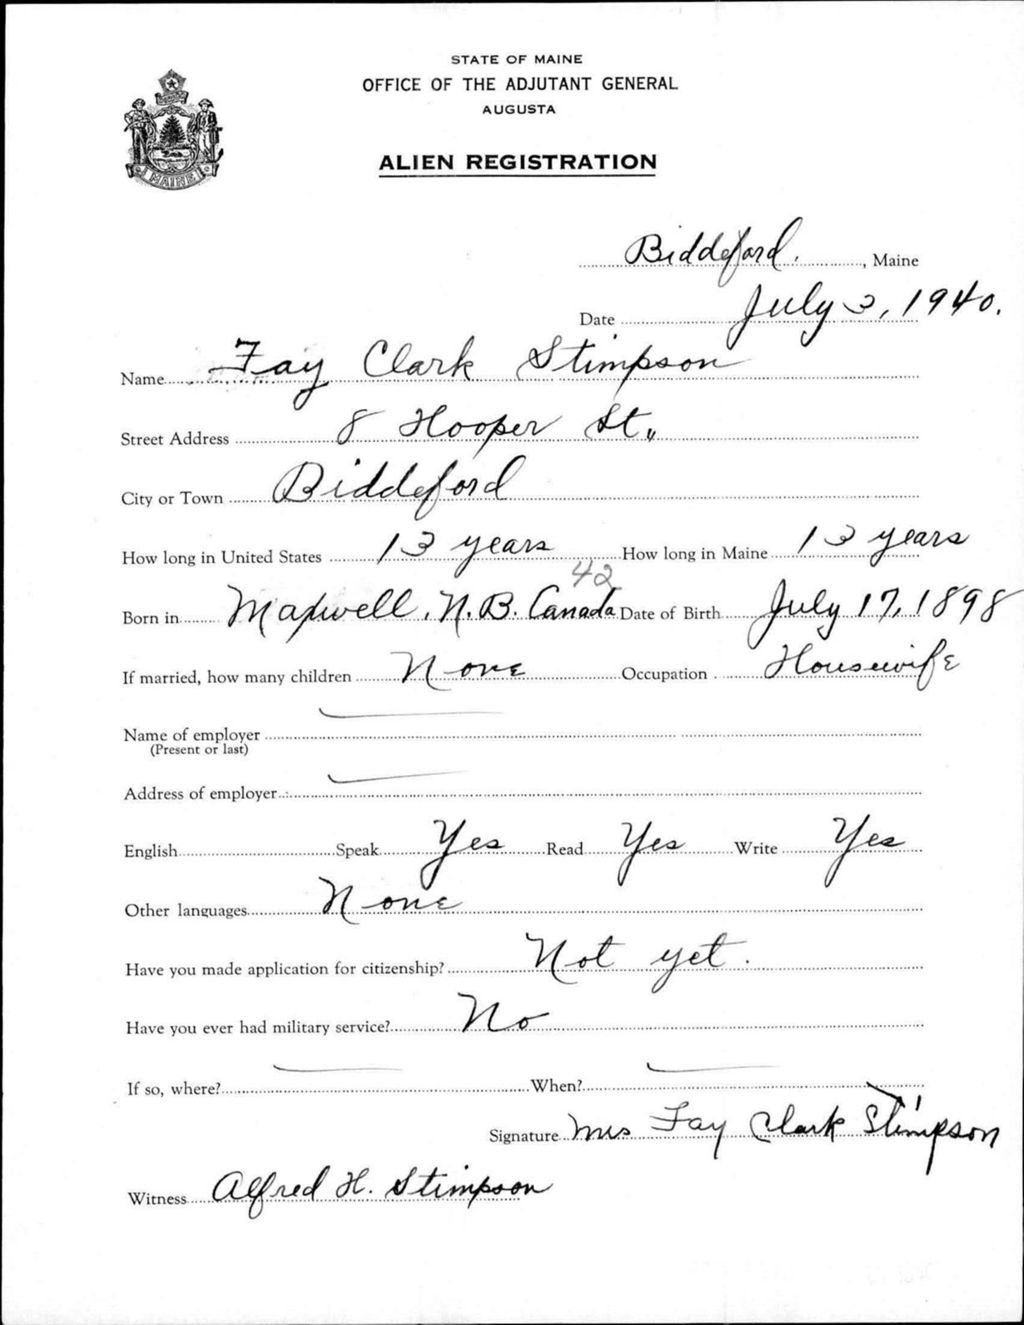 STATE OF MAINE
OFFICE OF THE ADJUTANT GENERAL
AUGUSTA
ALIEN REGISTRATION
MAINE
Biddeford, Maine
Date July 3, 1940.
Name Fay Clark Stimpson
Street Address 8 Hooper St.,
City or Town Biddeford
How long in United States 13 years How long in Maine 13 years
42
Born in Maxwell, N.B. Canada Date of Birth July 17, 1898
If married, how many children None Occupation Housewife
Name of employer
(Present or last)
Address of employer
English Speak Yes Read Yes Write Yes
Other languages None
Have you made application for citizenship? Not yet.
Have you ever had military service? No
If so, where? When?
Signature Mrs Fay Clark Stimpson
Witness Alfred H. Stimpson